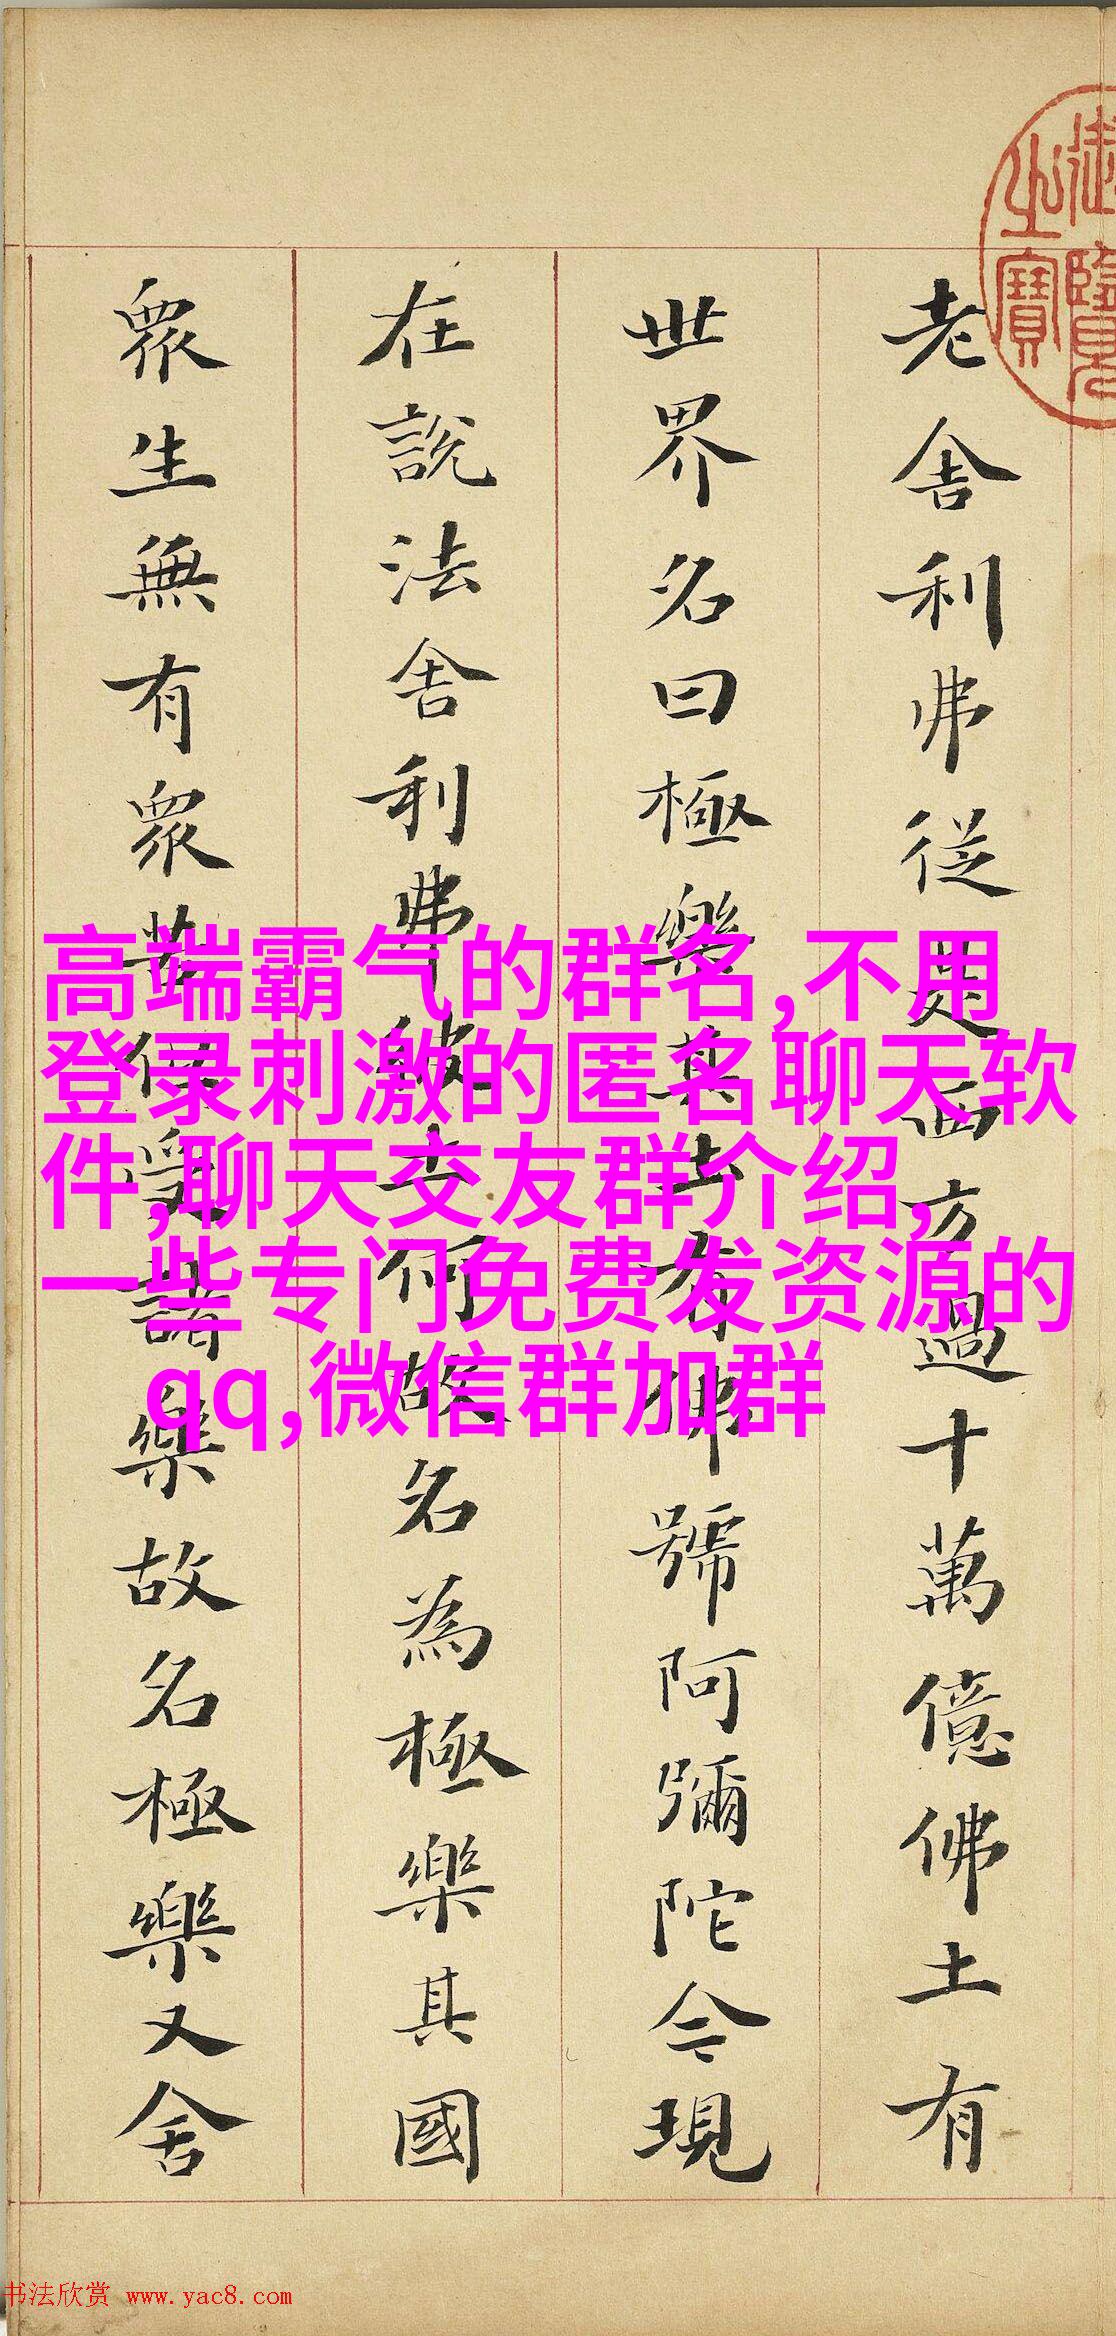 老舍利弗從是西方過十萬億佛土有
世界名曰極樂其土有佛號阿彌陀今現
在說法舍利弗彼土何故名為極樂其國
眾生無有眾苦但受諸樂故名極樂又舍
御覽之寶
高端霸气的群名,不用
登录刺激的匿名聊天软
件,聊天交友群介绍,
一些专门免费发资源的
qq,微信群加群
书法欣赏 www.yac8.com